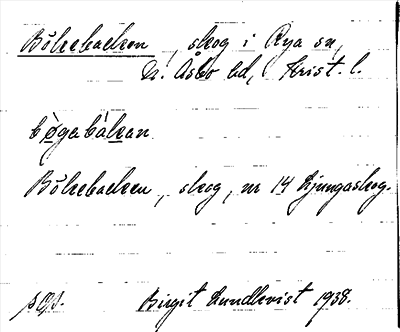 Bökebacken, skog i Rya sn,
N. Åsbo hd, Krist. l.
bø̀gabàkan
Bökebacken, skog, nr 14 Ljungaskog.
Birgit Lundkvist 1938.